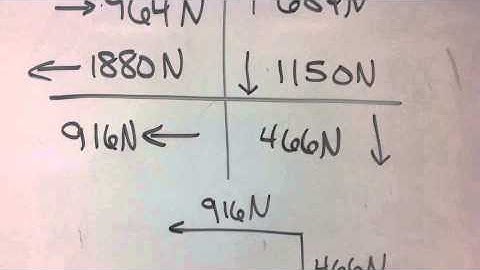 → 964N ↑ 684N
← 1880N ↓ 1150N
916N ← 466N ↓
916N
466N